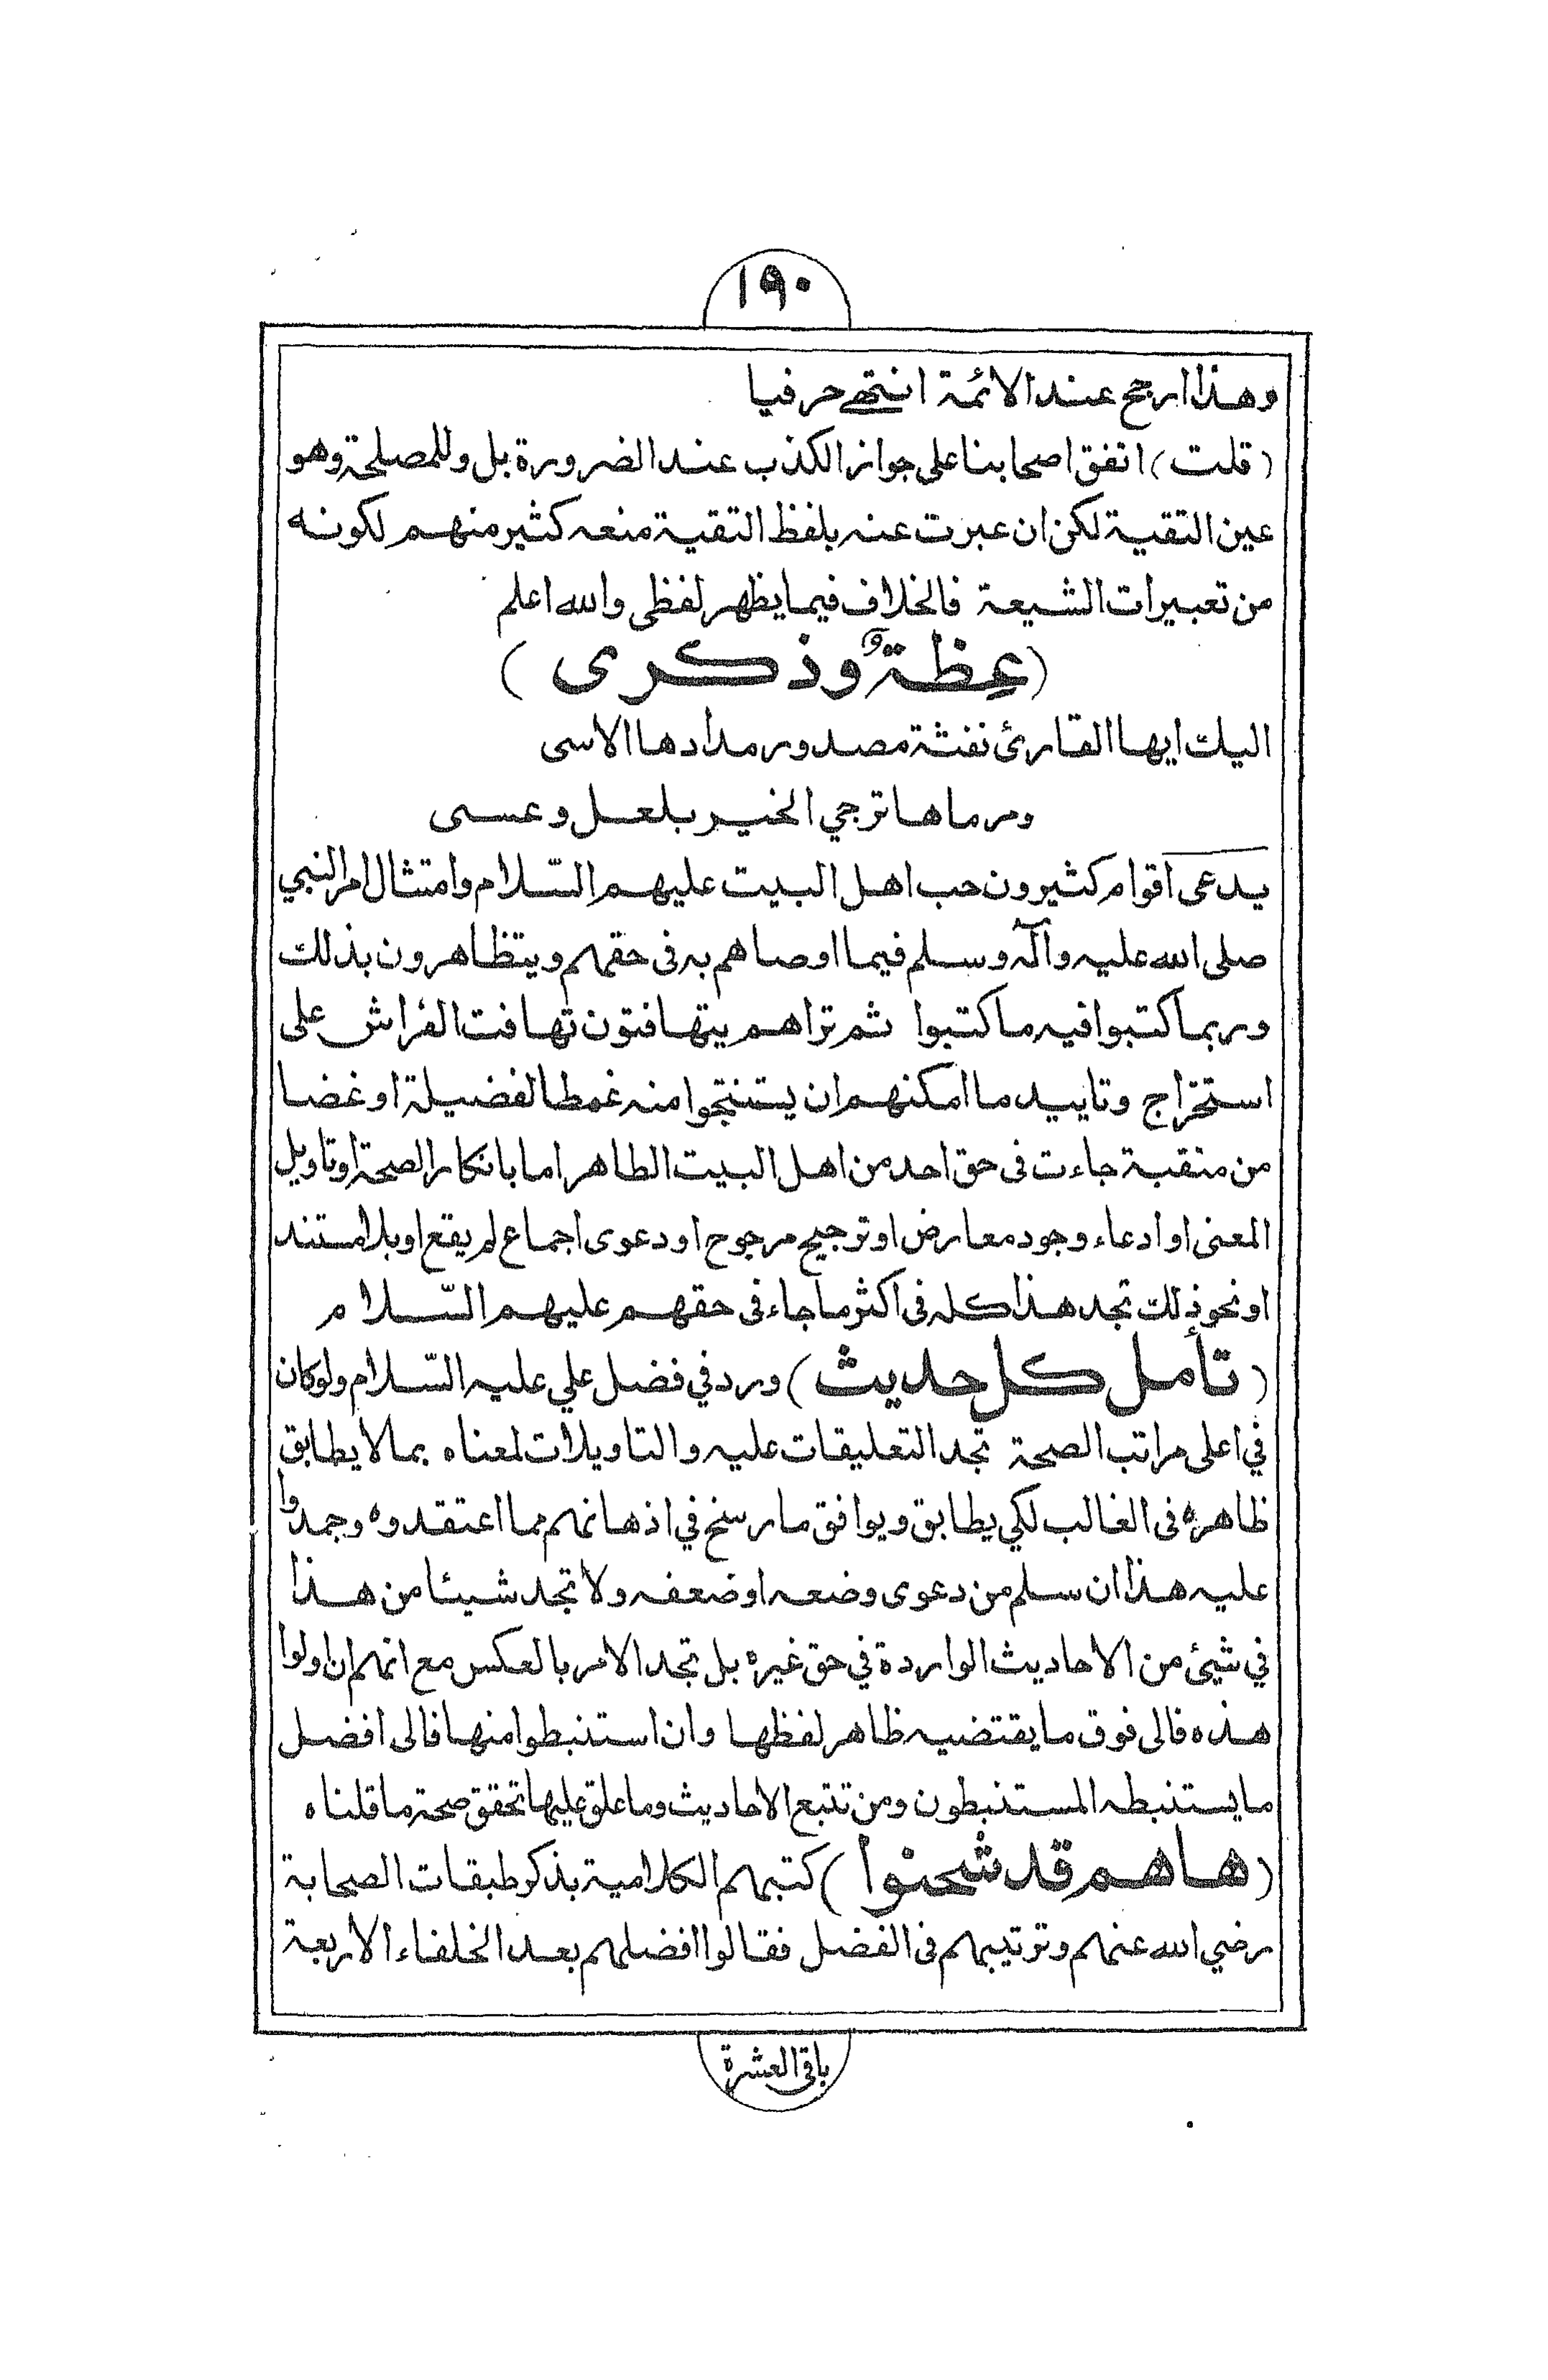 ١٩٠
وهذا ارجح عند الائمة انتهى حرفيا
(قلت) اتفق اصحابنا على جواز الكذب عند الضرورة بل وللمصلحة وهو
عين التقية لكن ان عبرت عنه بلفظ التقية منعه كثير منهم لكونه
من تعبيرات الشيعة فالخلاف فيما يظهر لفظي والله اعلم
(عِظةٌ وذكرى)
اليك ايها القارئ نفثة مصدور مدادها الاسى
ومرماها ترجي الخير بلعل وعسى
يدعى اقوام كثيرون حب اهل البيت عليهم السّلام وامتثال امر النبي
صلى الله عليه وآله وسلم فيما اوصاهم به فى حقهم ويتظاهرون بذلك
وربما كتبوا فيه ما كتبوا ثم تراهم يتهافتون تهافت الفراش على
استخراج وتاييد ما امكنهم ان يستنتجوا منه غمطا لفضيلة او غضا
من منقبة جاءت فى حق احد من اهل البيت الطاهر اما بانكار الصحة او تاويل
المعنى او ادعاء وجود معارض او ترجيح مرجوح او دعوى اجماع لم يقع او بلا مستند
او نحو ذلك تجد هذا كله فى اكثر ما جاء فى حقهم عليهم السّلام
(تأمل كل حديث) ورد في فضل علي عليه السّلام ولو كان
في اعلى مراتب الصحة تجد التعليقات عليه والتاويلات لمعناه بما لا يطابق
ظاهره فى الغالب لكي يطابق ويوافق ما رسخ في اذهانهم مما اعتقدوه وجمدوا
عليه هذا ان سلم من دعوى وضعه او ضعفه ولا تجد شيئا من هذا
في شيئ من الاحاديث الواردة في حق غيره بل تجد الامر بالعكس مع انهم ان اولوا
هذه فالى فوق ما يقتضيه ظاهر لفظها وان استنبطوا منها فالى افضل
ما يستنبطه المستنبطون ومن تتبع الاحاديث وما علق عليها تحقق صحة ما قلناه
(هاهم قد شحنوا) كتبهم الكلامية بذكر طبقات الصحابة
رضي الله عنهم وترتيبهم فى الفضل فقالوا افضلهم بعد الخلفاء الاربعة
باقى العشرة